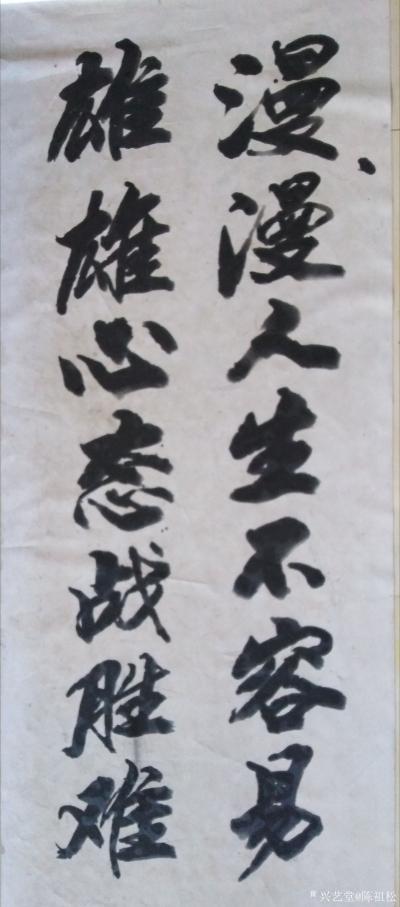 漫漫人生不容易
雄雄心态战胜难
兴艺堂@陈祖松